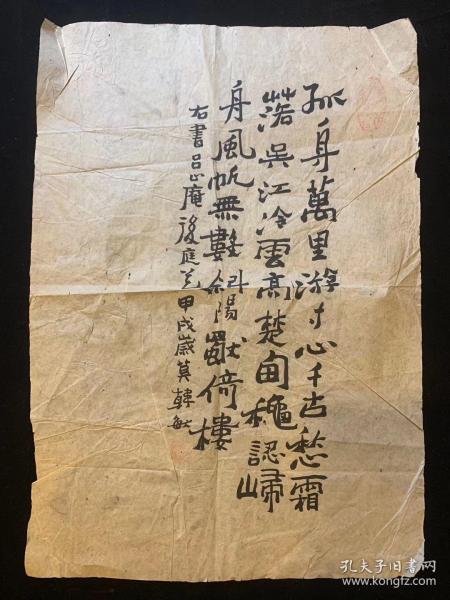 孤身萬里游寸心千古愁霜
落吳江冷雲高楚甸穐認歸
舟風帆無數斜陽獨倚樓
右書呂止庵後庭花甲戌歲莫韓敏
孔夫子旧书网
www.kongfz.com